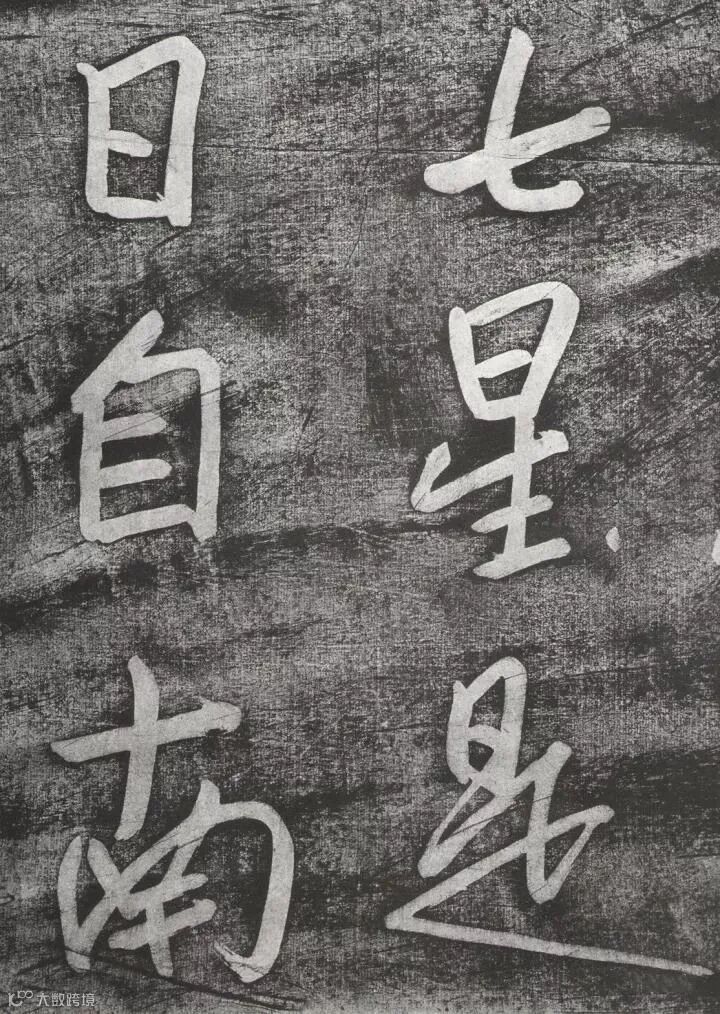 七星是
日自南
大数跨境